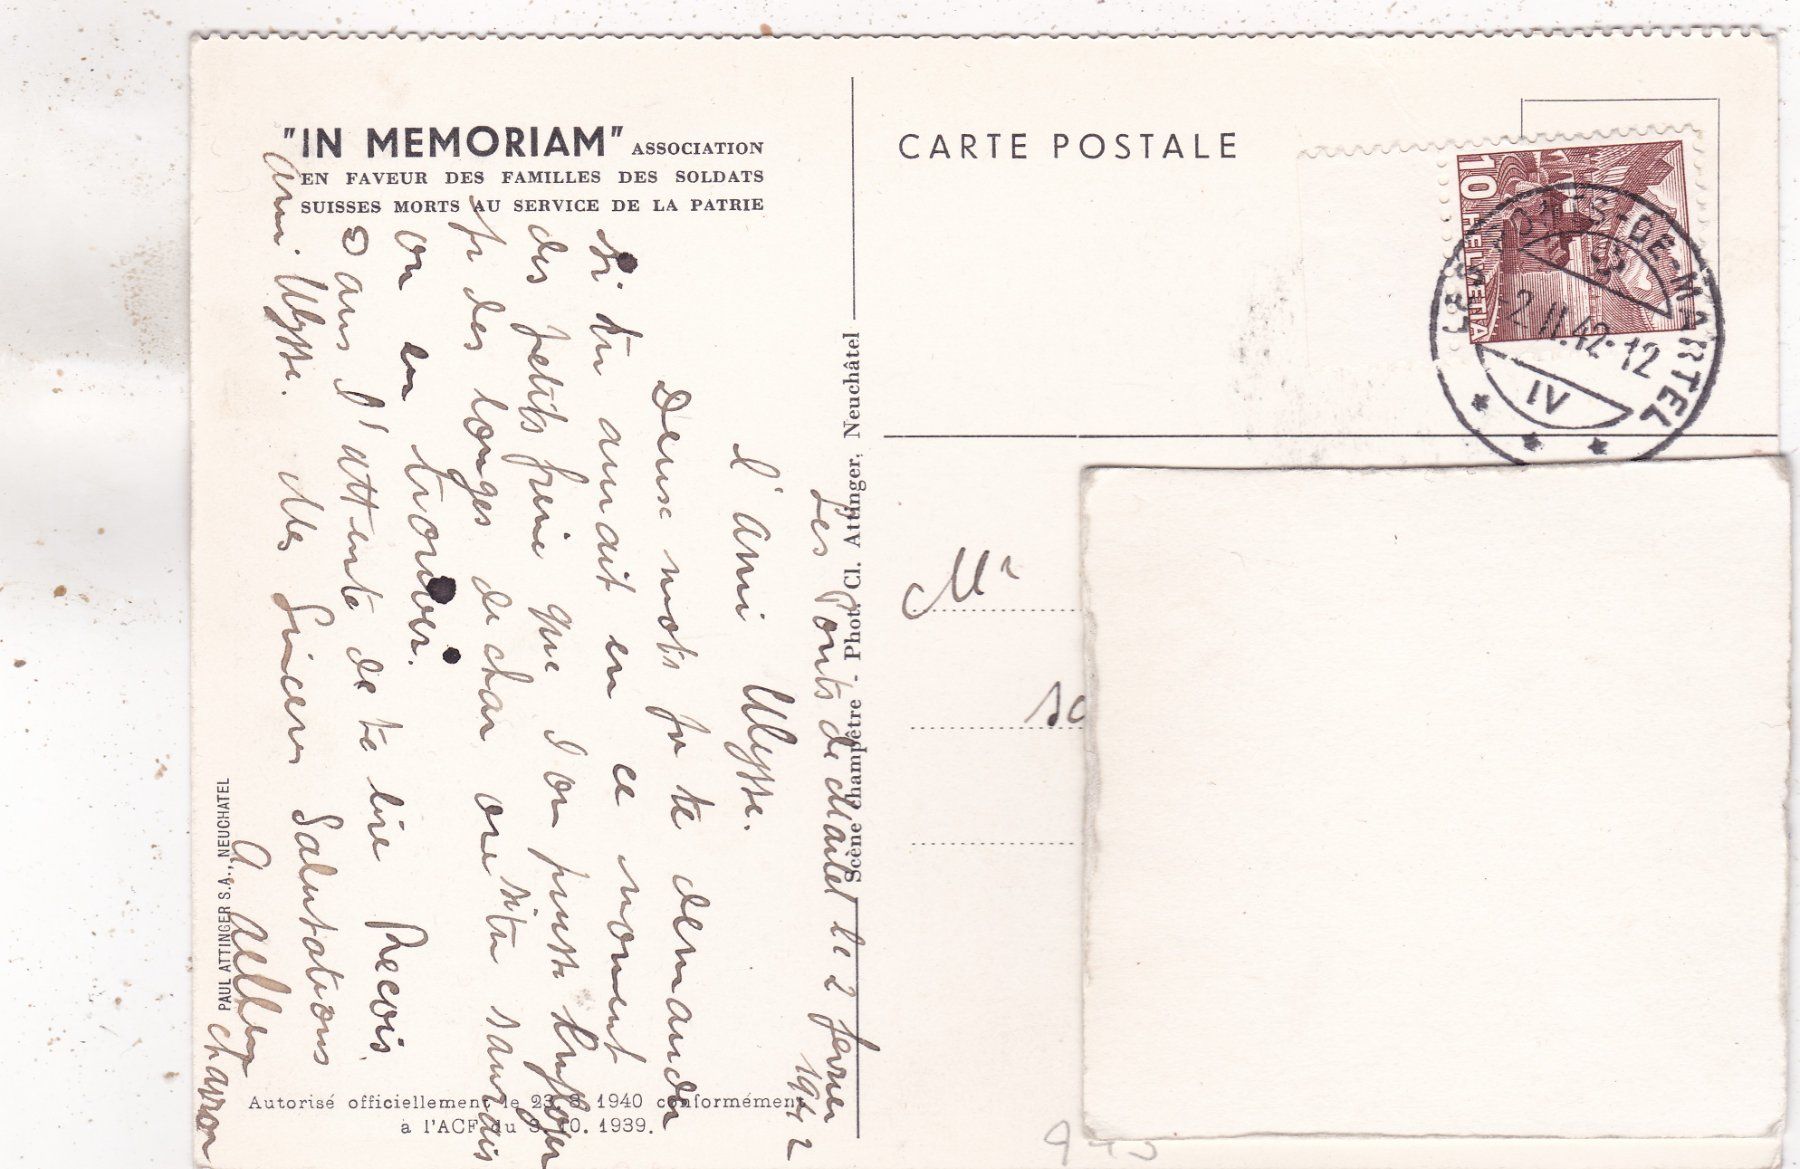 "IN MEMORIAM" ASSOCIATION
EN FAVEUR DES FAMILLES DES SOLDATS
SUISSES MORTS AU SERVICE DE LA PATRIE
CARTE POSTALE
10
HELVETIA
LES PONTS-DE-MARTEL
-2.II.42-12
IV
Les Ponts de Martel le 2 fevrier
1942
l'ami Ulysse.
Deux mots pr te demander
si tu aurait en ce moment
des petits frêne que l'on puisse employer
pr des longes de char ou si tu saurais
ou en trouver.
Dans l'attente de te lire Recois
ami Ulysse. Mes Sincères Salutations
charron
Scène champêtre - Phot. Cl. Attinger, Neuchâtel
PAUL ATTINGER S.A., NEUCHATEL
Autorisé officiellement le 23. 8. 1940 conformément
à l'ACF du 3. 10. 1939.
Mr